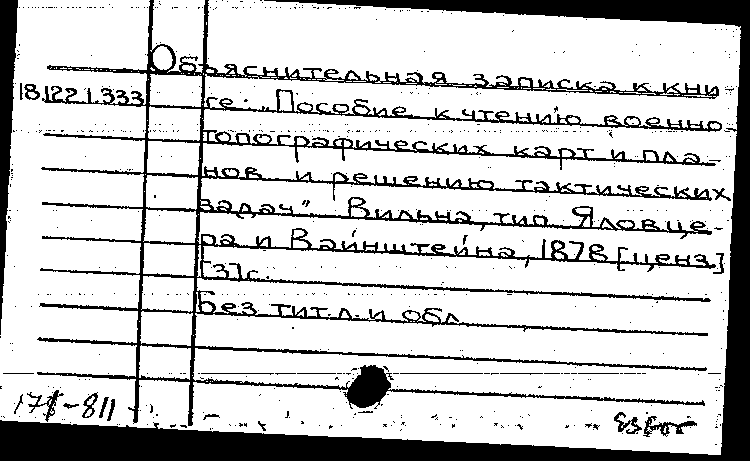 Объяснительная записка к кни-
18.122.1.333 ге: „Пособие к чтению военно-
топографических карт и пла-
нов и решению тактических
задач". Вильна, тип. Яловце-
ра и Вайнштейна, 1878 [ценз.]
[3] с.
Без тит. л. и обл.